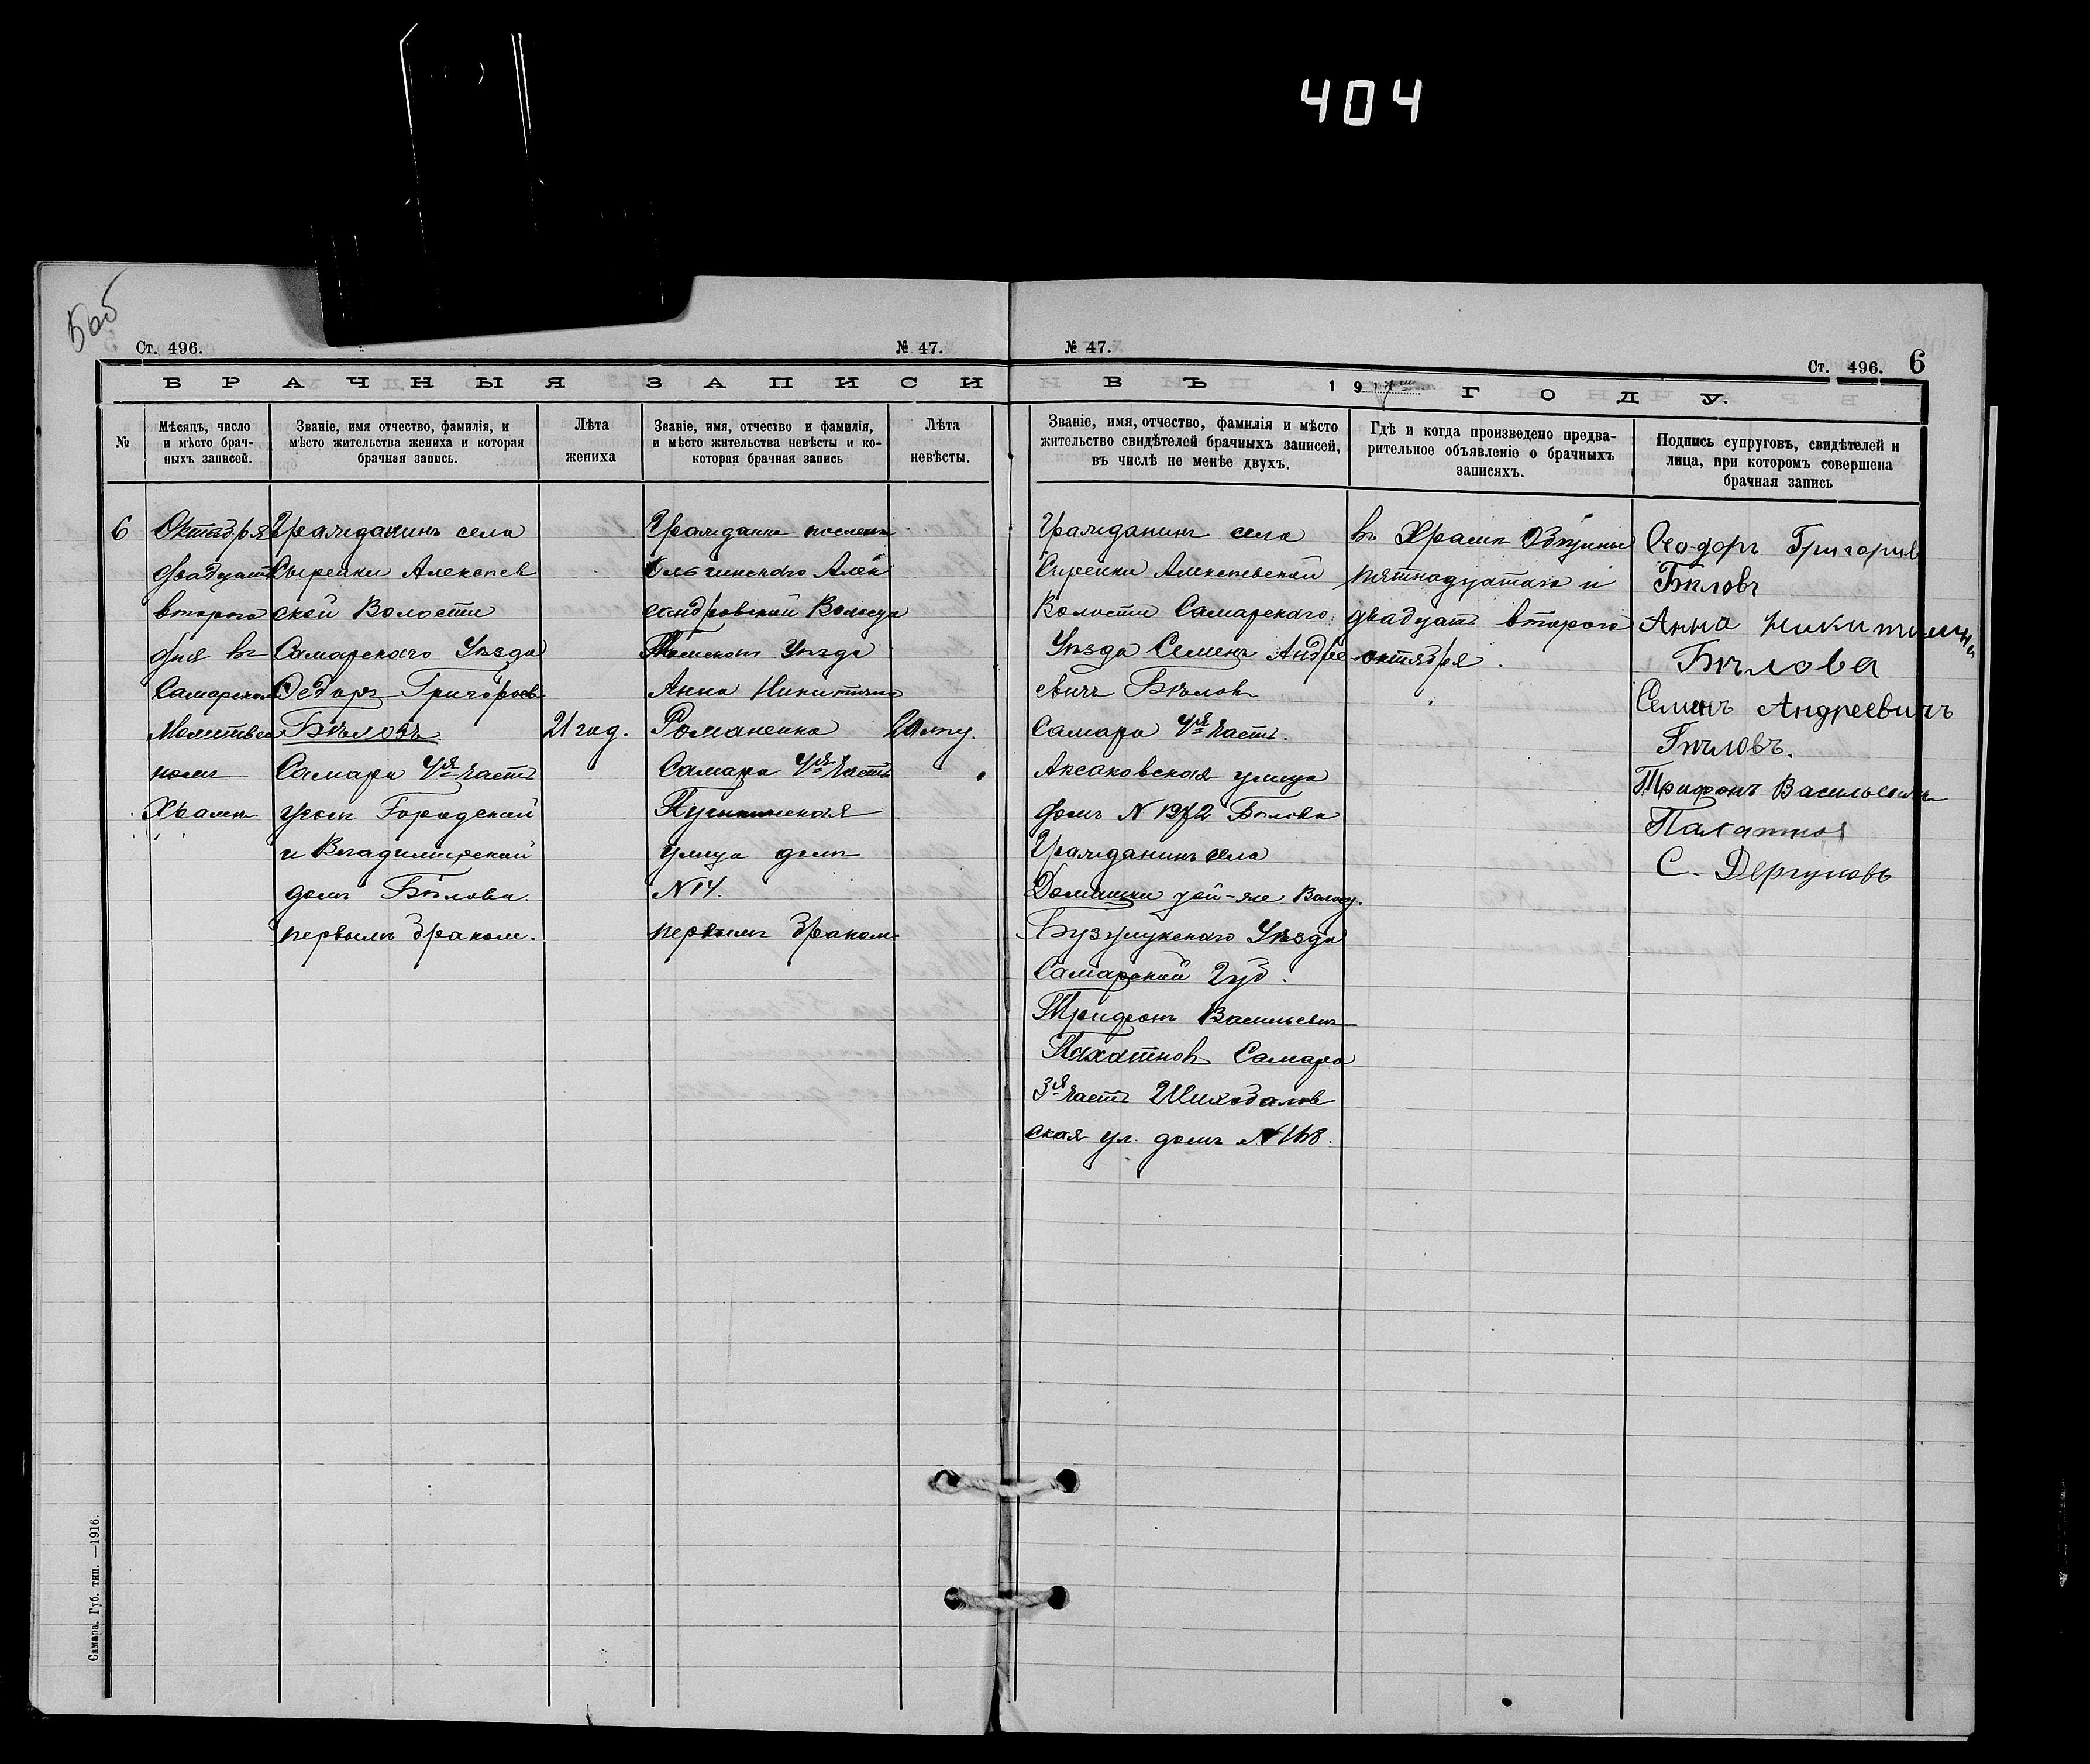 404
5об
Ст. 496.
№ 47.
№ 47.
Ст. 496. 6
БРАЧНЫЯ ЗАПИСИ ВЪ 1917 ГОДУ.
№
Мѣсяцъ, число
и мѣсто брач-
ныхъ записей.
Званіе, имя отчество, фамилія, и
мѣсто жительства жениха и которая
брачная запись.
Лѣта
жениха
Званіе, имя, отчество и фамилія,
и мѣсто жительства невѣсты и ко-
которая брачная запись
Лѣта
невѣсты.
Званіе, имя, отчество, фамилія и мѣсто
жительство свидѣтелей брачныхъ записей,
въ числѣ не менѣе двухъ.
Гдѣ и когда произведено предва-
рительное объявленіе о брачныхъ
записяхъ.
Подпись супруговъ, свидѣтелей и
лица, при которомъ совершена
брачная запись
6
Октября
двадцать
второго
дня въ
Самарском
Молитвен
номъ
Храмѣ
Гражданинъ села
Сырейки Алексѣев
ской Волости
Самарскаго Уѣзда
Ѳедоръ Григорьев
Бѣловъ
Самара 4я часть
уголъ Городской
и Владимирской
домъ Бѣлова.
первымъ бракомъ.
21 год.
Гражданка поселка
Ольгинскаго Алек
сандровской Волости
Томскаго Уѣзда
Анна Никитична
Романенко
Самара 4я часть
улица домъ
N 14.
первымъ бракомъ
20 лѣт.
Гражданинъ села
Сырейки Алексѣевской
Волости Самарскаго
Уѣзда Семенъ Андре
евичъ Бѣловъ
Самара 4я часть.
Аксаковская улица
домъ N Бѣлова
Гражданинъ села
Домашки той-же Волос.
Бузулукскаго Уѣзда
Самарской Губ.
Трифонъ Васильевичъ
Пахатновъ Самара
3я часть Шихобалов
ская ул. домъ N 168.
въ Храмѣ Общины
пятнадцатаго и
двадцать второго
октября.
Ѳеодоръ Григорьев
Бѣловъ
Анна Никитична
Бѣлова
Семенъ Андреевичъ
Бѣловъ.
Трифонъ Васильевичъ
Пахатнов
С. Дергуновъ
Самара. Губ. тип. —1916.